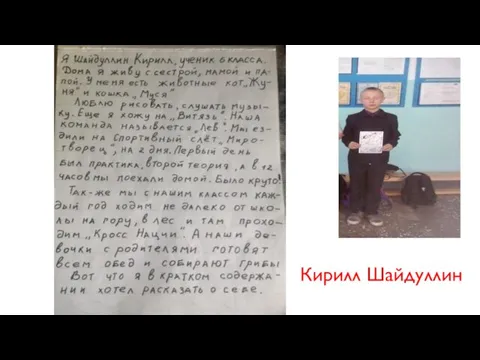 Я Шайдуллин Кирилл, ученик 6 класса.
Дома я живу с сестрой, мамой и па-
пой. У меня есть животные кот „Жу-
ня" и кошка „Муся"
Люблю рисовать, слушать музы-
ку. Еще я хожу на „Витязь". Наша
команда называется „Лев". Мы ез-
дили на спортивный слёт „Миро-
творец", на 2 дня. Первый день
был практика, второй теория, а в 12
часов мы поехали домой. Было круто!
Так-же мы с нашим классом каж-
дый год ходим не далеко от шко-
лы на гору, в лес и там прохо-
дим „Кросс Нации". А наши де-
вочки с родителями готовят
всем обед и собирают грибы
Вот что я в кратком содержа-
нии хотел расказать о себе.
Кирилл Шайдуллин